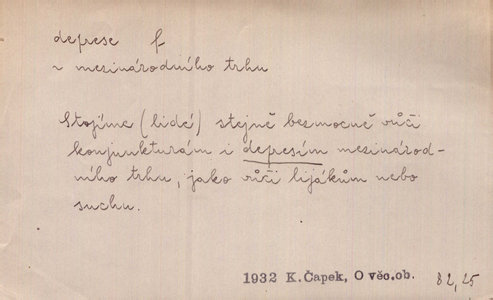 deprese f
~ mezinárodního trhu
Stojíme (lidé) stejně bezmocně vůči
konjunkturám i depresím mezinárod-
ního trhu, jako vůči lijákům nebo
suchu.
1932 K.Čapek, O věc.ob. 82,25